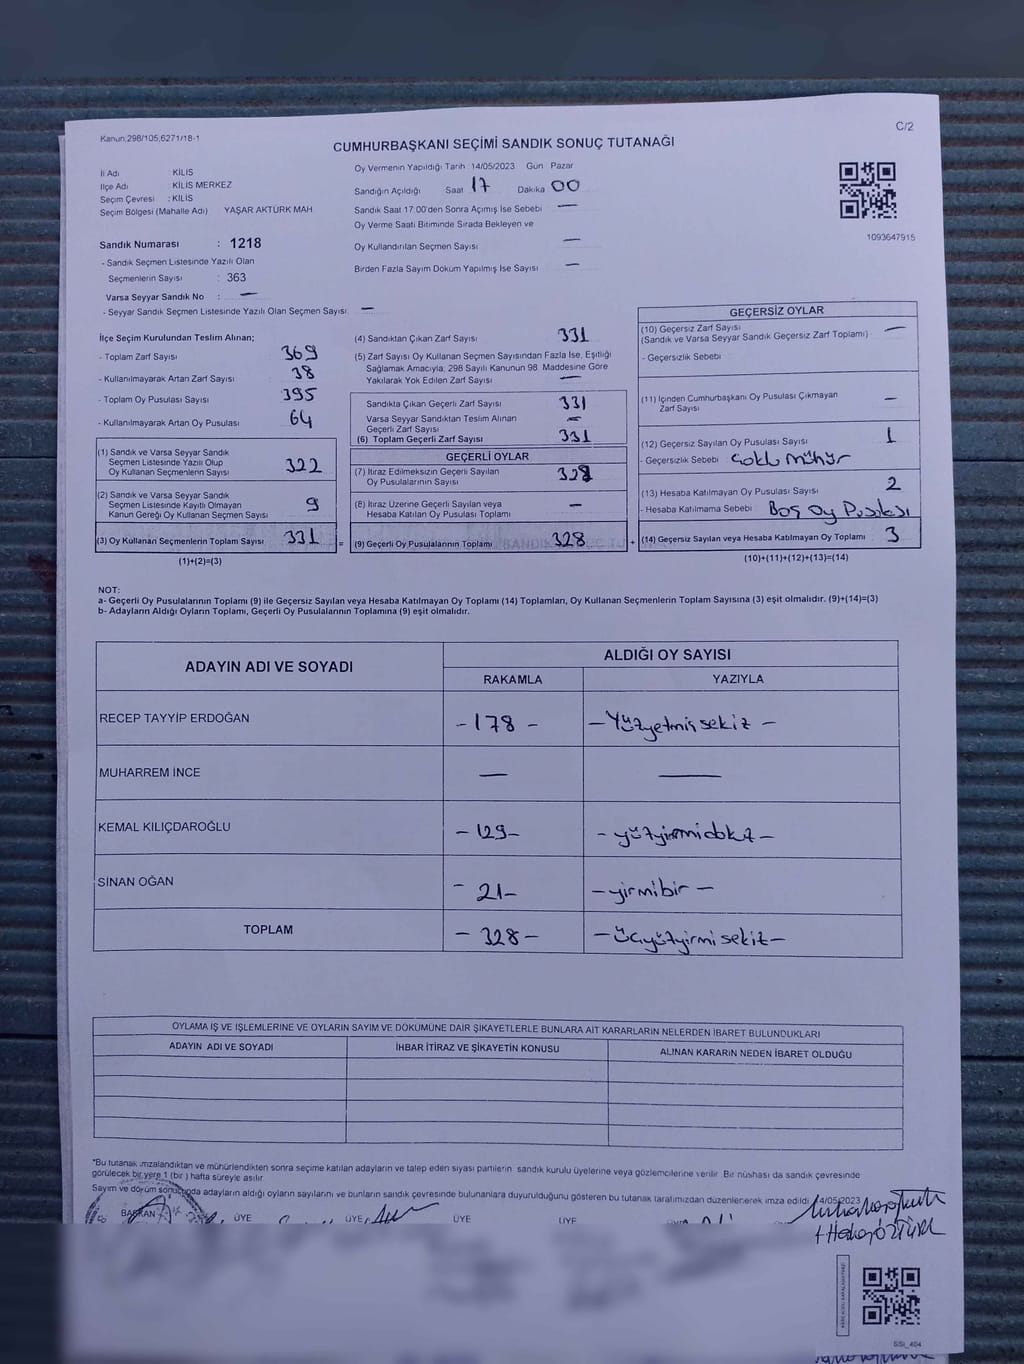 Kanun;298/105,6271/18-1
C/2
CUMHURBAŞKANI SEÇİMİ SANDIK SONUÇ TUTANAĞI
İl Adı KİLİS
İlçe Adı KİLİS MERKEZ
Seçim Çevresi : KİLİS
Seçim Bölgesi (Mahalle Adı) YAŞAR AKTÜRK MAH
Sandık Numarası : 1218
- Sandık Seçmen Listesinde Yazılı Olan
Seçmenlerin Sayısı : 363
Varsa Seyyar Sandık No : —
- Seyyar Sandık Seçmen Listesinde Yazılı Olan Seçmen Sayısı: —
Oy Vermenin Yapıldığı Tarih :14/05/2023 Gün : Pazar
Sandığın Açıldığı Saat 17 Dakika 00
Sandık Saat 17:00'den Sonra Açımış İse Sebebi —
Oy Verme Saati Bitiminde Sırada Bekleyen ve
Oy Kullandırılan Seçmen Sayısı —
Birden Fazla Sayım Döküm Yapılmış İse Sayısı —
1093647915
İlçe Seçim Kurulundan Teslim Alınan;
- Toplam Zarf Sayısı 369
- Kullanılmayarak Artan Zarf Sayısı 38
- Toplam Oy Pusulası Sayısı 395
- Kullanılmayarak Artan Oy Pusulası 64
(1) Sandık ve Varsa Seyyar Sandık
Seçmen Listesinde Yazılı Olup
Oy Kullanan Seçmenlerin Sayısı 322
(2) Sandık ve Varsa Seyyar Sandık
Seçmen Listesinde Kayıtlı Olmayan
Kanun Gereği Oy Kullanan Seçmen Sayısı 9
(3) Oy Kullanan Seçmenlerin Toplam Sayısı 331
(1)+(2)=(3)
=
(4) Sandıktan Çıkan Zarf Sayısı 331
(5) Zarf Sayısı Oy Kullanan Seçmen Sayısından Fazla İse, Eşitliği
Sağlamak Amacıyla; 298 Sayılı Kanunun 98. Maddesine Göre
Yakılarak Yok Edilen Zarf Sayısı —
Sandıkta Çıkan Geçerli Zarf Sayısı 331
Varsa Seyyar Sandıktan Teslim Alınan
Geçerli Zarf Sayısı —
(6) Toplam Geçerli Zarf Sayısı 331
GEÇERLİ OYLAR
(7) İtiraz Edilmeksizin Geçerli Sayılan
Oy Pusulalarının Sayısı 328
(8) İtiraz Üzerine Geçerli Sayılan veya
Hesaba Katılan Oy Pusulası Toplamı —
(9) Geçerli Oy Pusulalarının Toplamı 328
+
GEÇERSİZ OYLAR
(10) Geçersiz Zarf Sayısı —
(Sandık ve Varsa Seyyar Sandık Geçersiz Zarf Toplamı)
- Geçersizlik Sebebi
(11) İçinden Cumhurbaşkanı Oy Pusulası Çıkmayan
Zarf Sayısı —
(12) Geçersiz Sayılan Oy Pusulası Sayısı 1
- Geçersizlik Sebebi Çoklu mühür
(13) Hesaba Katılmayan Oy Pusulası Sayısı 2
- Hesaba Katılmama Sebebi Boş Oy Pusulası
(14) Geçersiz Sayılan veya Hesaba Katılmayan Oy Toplamı 3
(10)+(11)+(12)+(13)=(14)
NOT:
a- Geçerli Oy Pusulalarının Toplamı (9) ile Geçersiz Sayılan veya Hesaba Katılmayan Oy Toplamı (14) Toplamları, Oy Kullanan Seçmenlerin Toplam Sayısına (3) eşit olmalıdır. (9)+(14)=(3)
b- Adayların Aldığı Oyların Toplamı, Geçerli Oy Pusulalarının Toplamına (9) eşit olmalıdır.
ADAYIN ADI VE SOYADI ALDIĞI OY SAYISI
RAKAMLA YAZIYLA
RECEP TAYYİP ERDOĞAN -178- -Yüzyetmişsekiz-
MUHARREM İNCE — —
KEMAL KILIÇDAROĞLU -129- -yüzyirmidokuz-
SİNAN OĞAN -21- -yirmibir-
TOPLAM -328- -Üçyüzyirmisekiz-
OYLAMA İŞ VE İŞLEMLERİNE VE OYLARIN SAYIM VE DÖKÜMÜNE DAİR ŞİKAYETLERLE BUNLARA AİT KARARLARIN NELERDEN İBARET BULUNDUKLARI
ADAYIN ADI VE SOYADI İHBAR İTİRAZ VE ŞİKAYETİN KONUSU ALINAN KARARIN NEDEN İBARET OLDUĞU
*Bu tutanak imzalandıktan ve mühürlendikten sonra seçime katılan adayların ve talep eden siyasi partilerin sandık kurulu üyelerine veya gözlemcilerine verilir. Bir nüshası da sandık çevresinde
görülecek bir yere 1 (bir) hafta süreyle asılır.
Sayım ve döküm sonucunda adayların aldığı oyların sayılarını ve bunların sandık çevresinde bulunanlara duyurulduğunu gösteren bu tutanak tarafımızdan düzenlenerek imza edildi. 14/05/2023
BAŞKAN ÜYE ÜYE ÜYE ÜYE
ÖZTÜRK
SSI_404